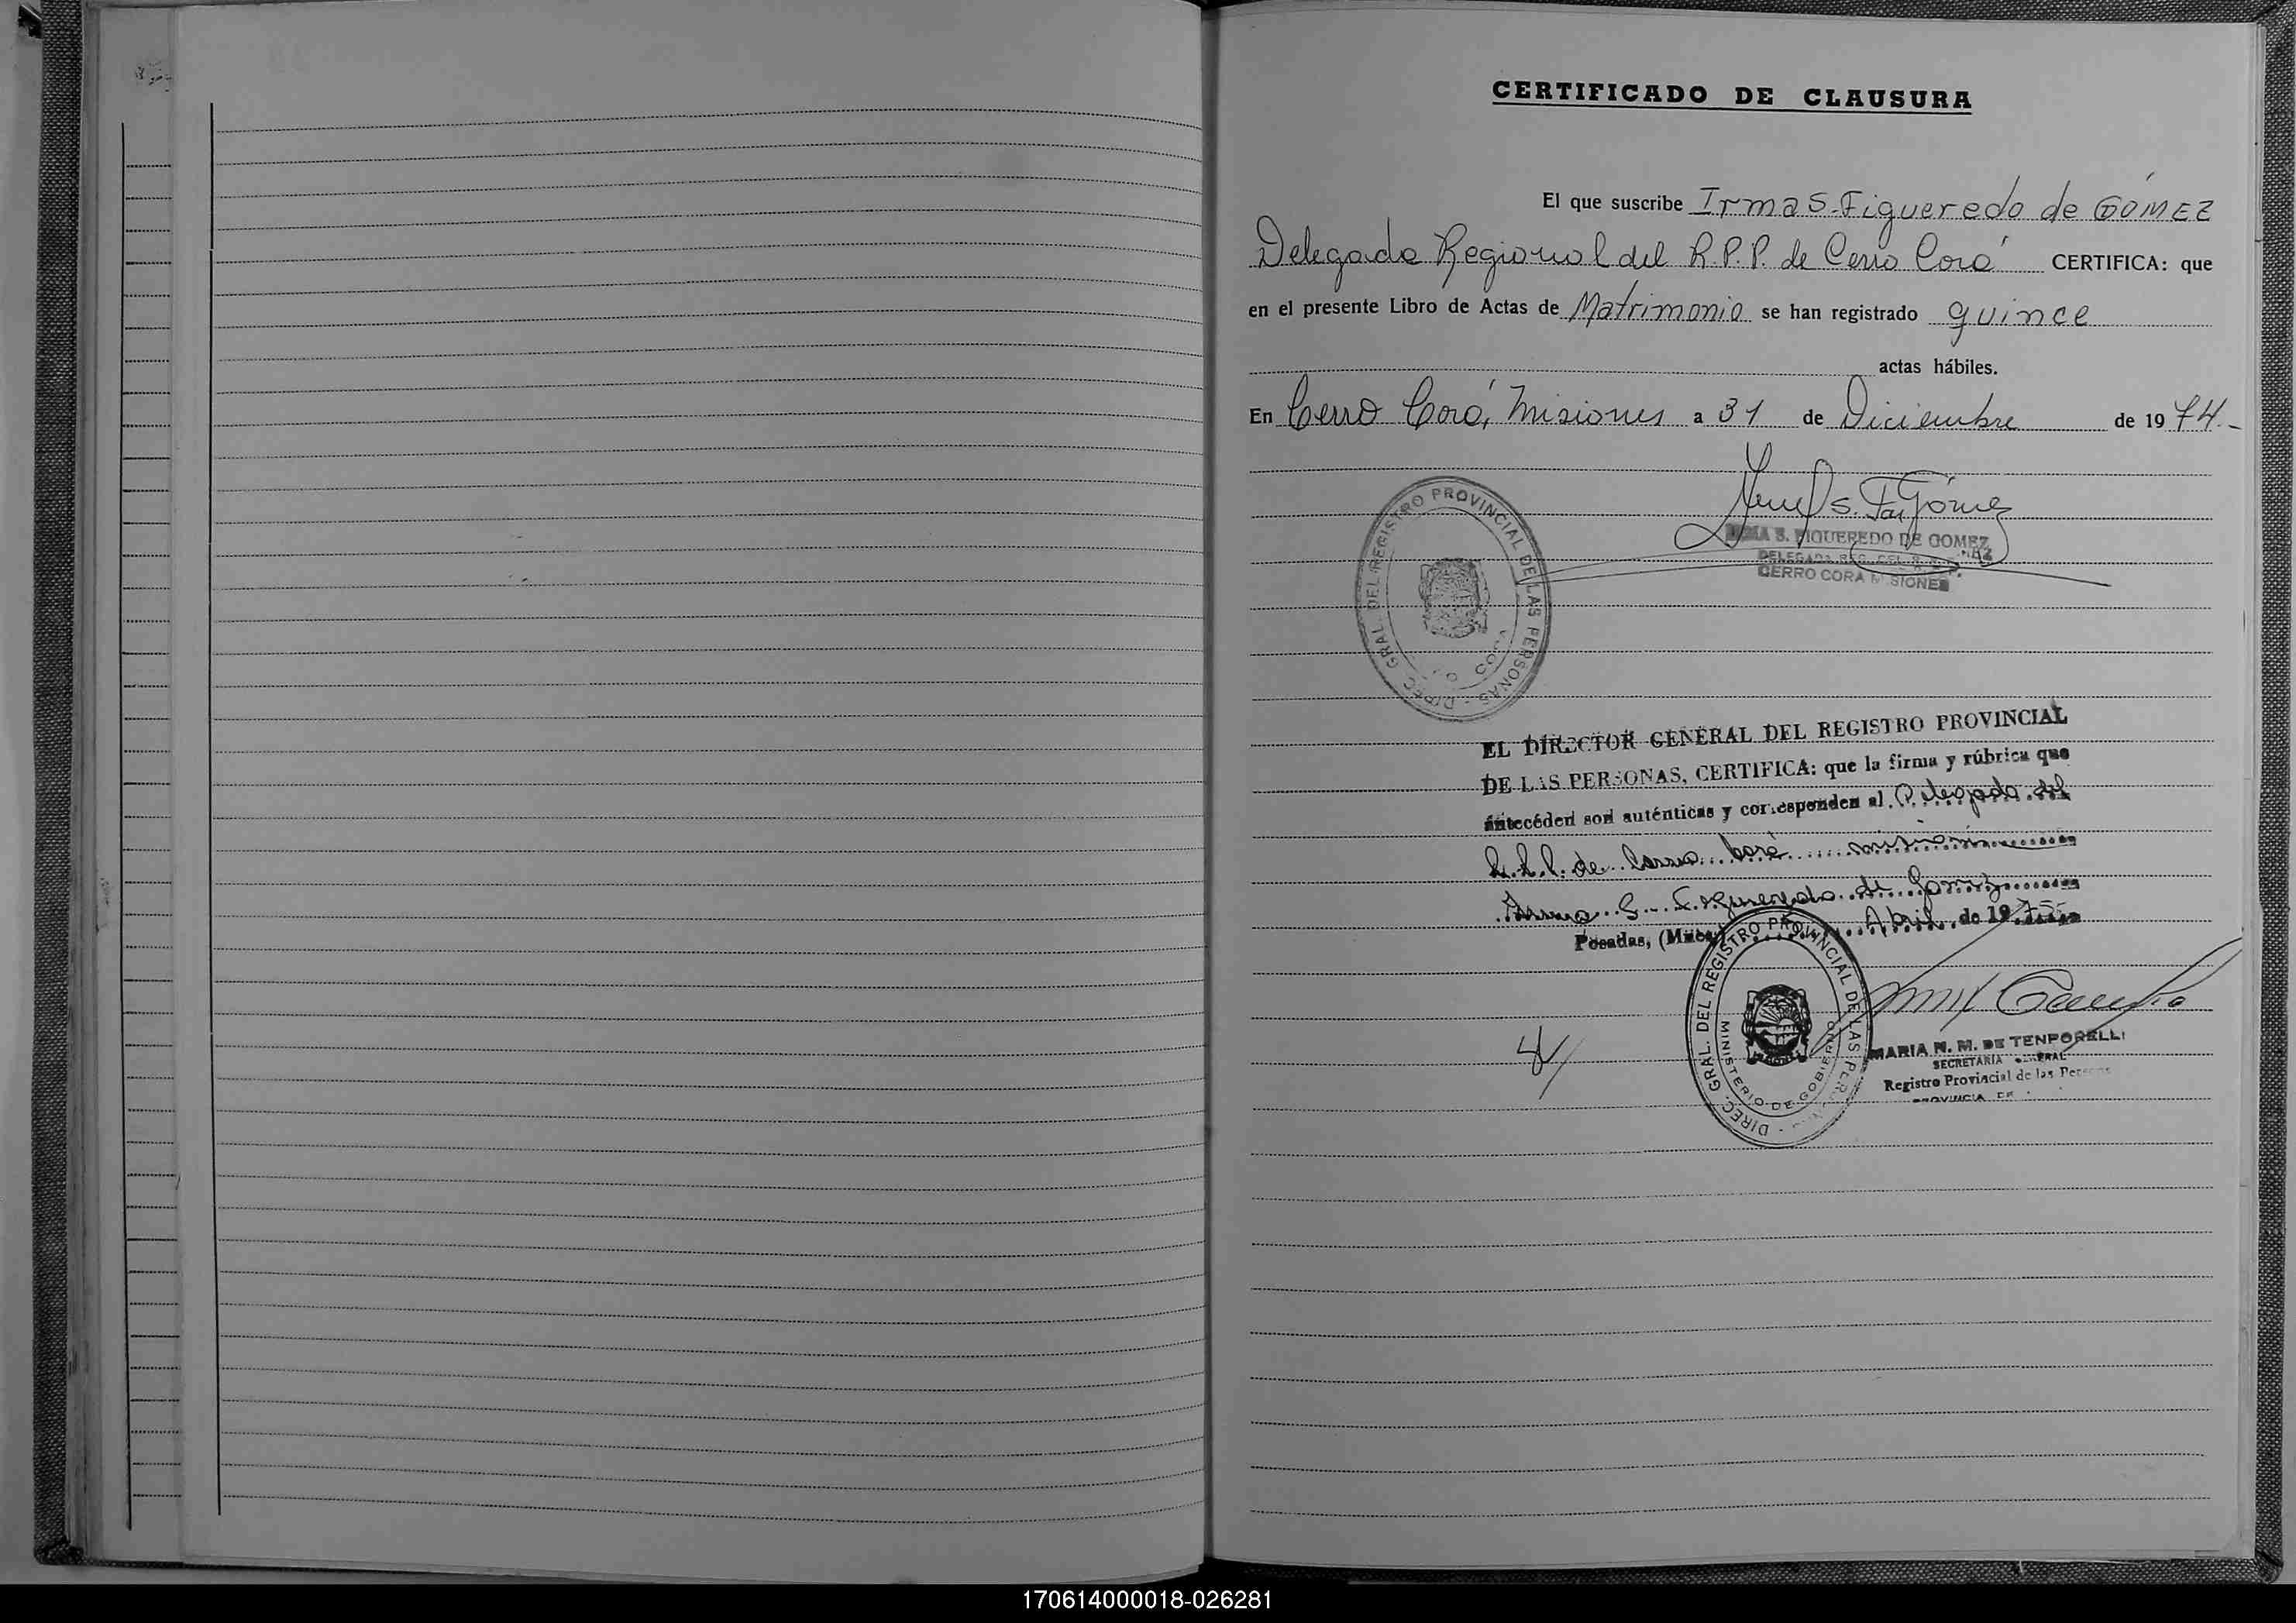 CERTIFICADO DE CLAUSURA
El que suscribe Irma S. Figueredo de GÓMEZ
Delegada Regional del R.P.P. de Cerro Corá CERTIFICA: que
en el presente Libro de Actas de Matrimonio se han registrado quince
actas hábiles.
En Cerro Corá, Misiones a 31 de Diciembre de 1974.-
DIREC. GRAL. DEL REGISTRO PROVINCIAL DE LAS PERSONAS
S. F. Gómez
IRMA S. FIGUEREDO DE GOMEZ
DELEGADA REG. DEL
CERRO CORA MISIONES
EL DIRECTOR GENERAL DEL REGISTRO PROVINCIAL
DE LAS PERSONAS, CERTIFICA: que la firma y rúbrica que
anteceden son auténticas y corresponden al Delegada del
R.P.P. de Cerro Corá misiones
Irma S. Figueredo de Gomez
Posadas, (Mnes) Abril de 1975
DIREC. GRAL. DEL REGISTRO PROVINCIAL DE LAS PERSONAS
MINISTERIO DE GOBIERNO
MARIA N. M. DE TENPORELLI
SECRETARIA GENERAL
Registro Provincial de las Personas
PROVINCIA DE
170614000018-026281